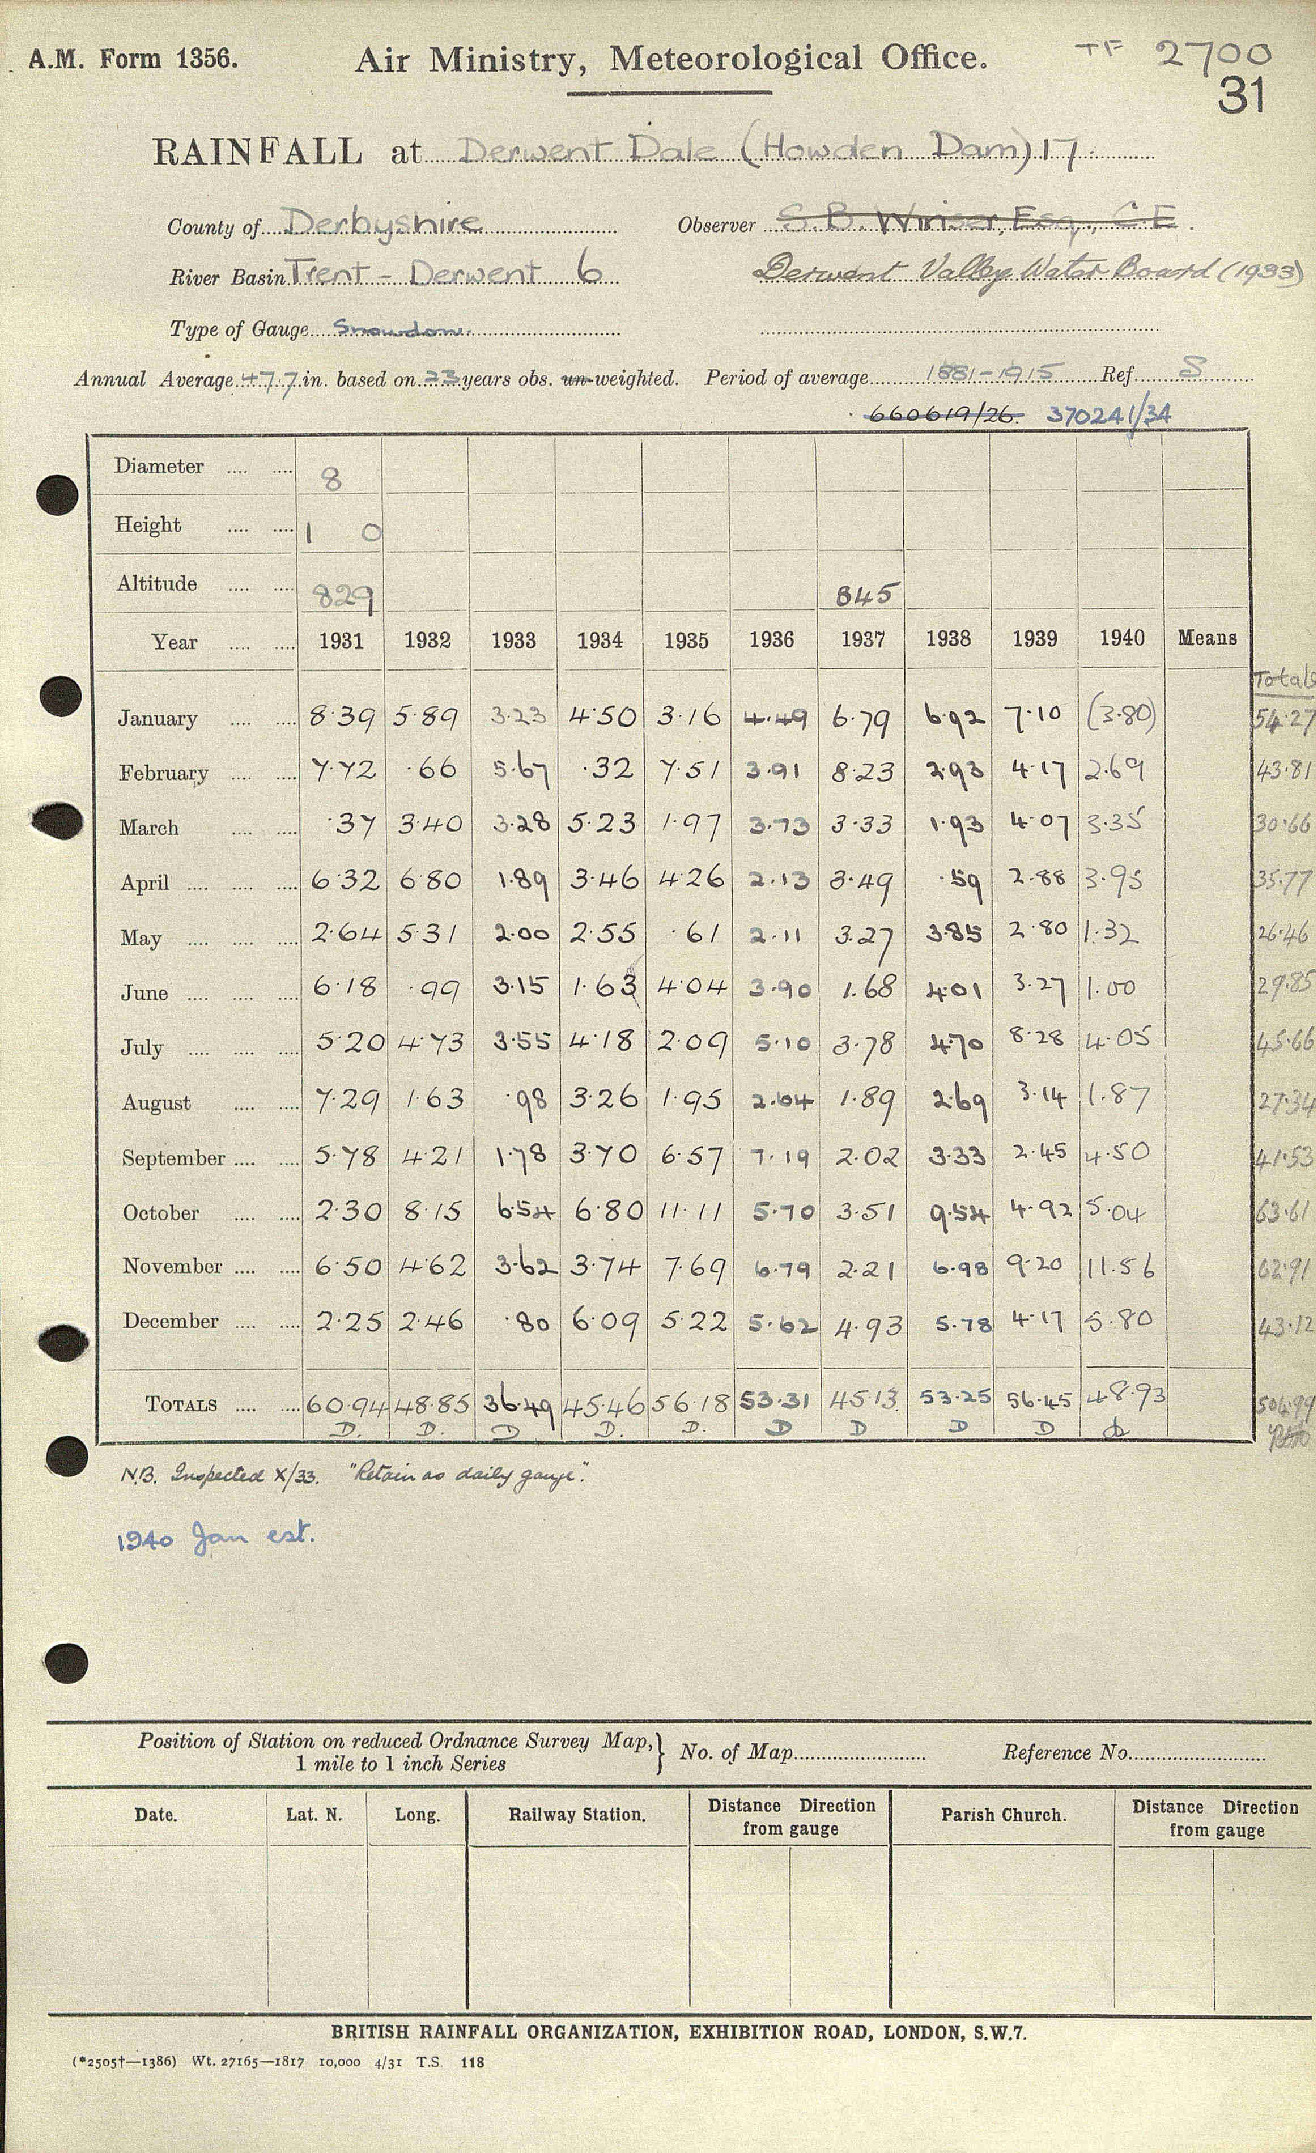 A.M. Form 1356. Air Ministry, Meteorological Office. TF 2700
31
RAINFALL at Derwent Dale (Howden Dam) 17.
County of Derbyshire Observer S. B. Winser, Esq., C.E.
River Basin Trent - Derwent 6 Derwent Valley Water Board (1933)
Type of Gauge Snowdon.
Annual Average 47.7 in. based on 23 years obs. un-weighted. Period of average 1881-1915 Ref S
660619/26. 370241/34
Diameter 8
Height 1 0
Altitude 829 845
Year 1931 1932 1933 1934 1935 1936 1937 1938 1939 1940 Means
Totals
January 8.39 5.89 3.23 4.50 3.16 4.49 6.79 6.92 7.10 (3.80) 54.27
February 7.72 .66 5.67 .32 7.51 3.91 8.23 2.93 4.17 2.69 43.81
March .37 3.40 3.28 5.23 1.97 3.73 3.33 1.93 4.07 3.35 30.66
April 6.32 6.80 1.89 3.46 4.26 2.13 3.49 .59 2.88 3.95 35.77
May 2.64 5.31 2.00 2.55 .61 2.11 3.27 3.85 2.80 1.32 26.46
June 6.18 .99 3.15 1.63 4.04 3.90 1.68 4.01 3.27 1.00 29.85
July 5.20 4.73 3.55 4.18 2.09 5.10 3.78 4.70 8.28 4.05 45.66
August 7.29 1.63 .98 3.26 1.95 2.64 1.89 2.69 3.14 1.87 27.34
September 5.78 4.21 1.78 3.70 6.57 7.19 2.02 3.33 2.45 4.50 41.53
October 2.30 8.15 6.54 6.80 11.11 5.70 3.51 9.54 4.92 5.04 63.61
November 6.50 4.62 3.62 3.74 7.69 6.79 2.21 6.98 9.20 11.56 62.91
December 2.25 2.46 .80 6.09 5.22 5.62 4.93 5.78 4.17 5.80 43.12
TOTALS 60.94 48.85 36.49 45.46 56.18 53.31 45.13 53.25 56.45 48.93 504.99
D. D. D D. D. D D D D D
N.B. Inspected X/33. "Retain as daily gauge".
1940 Jan est.
Position of Station on reduced Ordnance Survey Map, } No. of Map Reference No.
1 mile to 1 inch Series
Date. Lat. N. Long. Railway Station. Distance Direction from gauge Parish Church. Distance Direction from gauge
BRITISH RAINFALL ORGANIZATION, EXHIBITION ROAD, LONDON, S.W.7.
(*2505†—1386) Wt. 27165—1817 10,000 4/31 T.S. 118